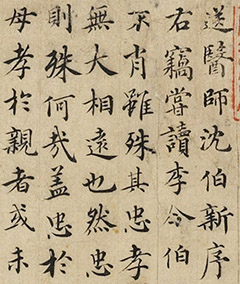 送醫師沈伯新序
右竊嘗讀李令伯
不肖雖殊其忠孝
無大相遠也然忠
則殊何哉蓋忠於
母孝於親者或未